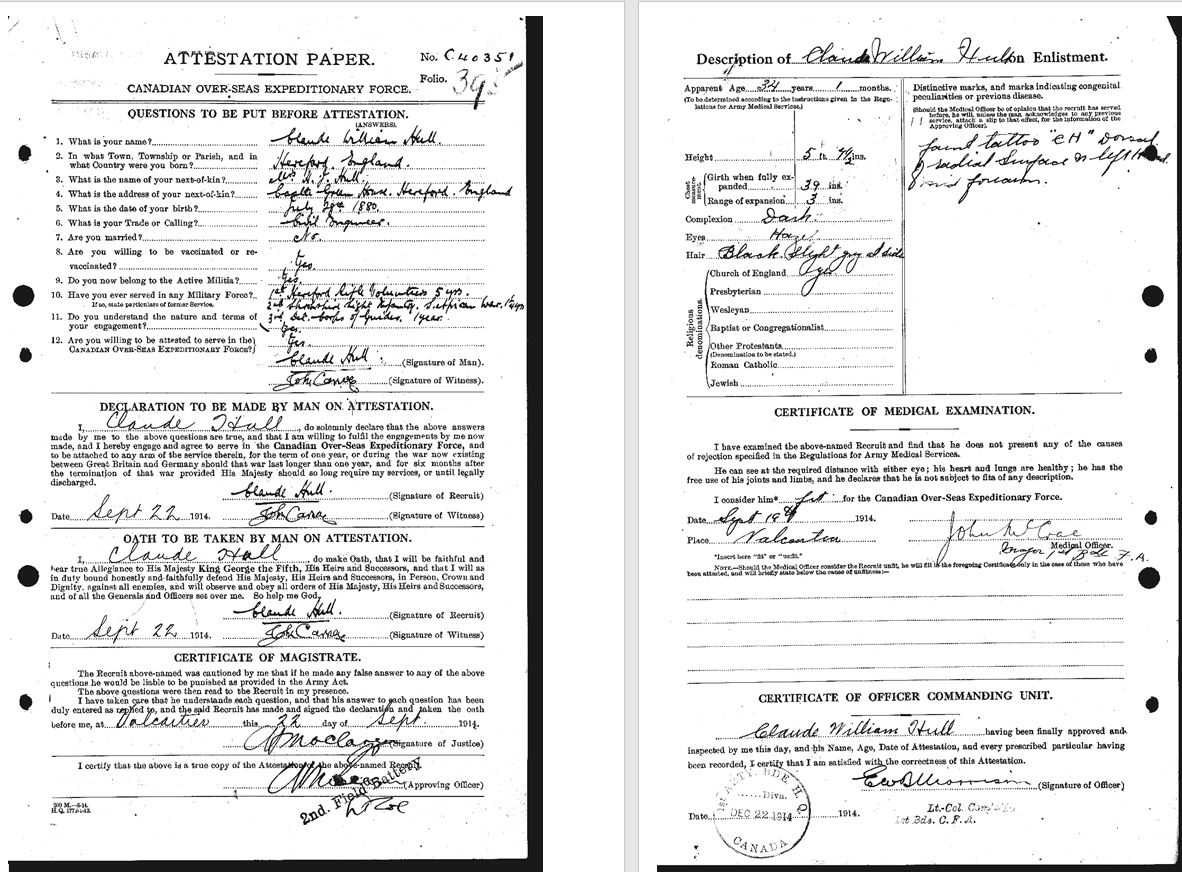 ATTESTATION PAPER.
No. C 40351
Folio.
CANADIAN OVER-SEAS EXPEDITIONARY FORCE.
QUESTIONS TO BE PUT BEFORE ATTESTATION.
(ANSWERS).
1. What is your name? Claude William Hull.
2. In what Town, Township or Parish, and in
what Country were you born? Hereford England.
3. What is the name of your next-of-kin? Hull
4. What is the address of your next-of-kin? Castle Green House. Hereford. England
5. What is the date of your birth? July 1880.
6. What is your Trade or Calling? Civil Engineer.
7. Are you married? No.
8. Are you willing to be vaccinated or re-
vaccinated? Yes.
9. Do you now belong to the Active Militia? Yes.
10. Have you ever served in any Military Force? 1st Hereford Rifle Volunteers 5 yrs
If so, state particulars of former Service. 2nd Light Infantry. African War.
11. Do you understand the nature and terms of
your engagement? 3rd Corps of Guides. 1 year. Yes.
12. Are you willing to be attested to serve in the
CANADIAN OVER-SEAS EXPEDITIONARY FORCE? Yes.
Claude Hull. (Signature of Man).
(Signature of Witness).
DECLARATION TO BE MADE BY MAN ON ATTESTATION.
I, Claude Hull, do solemnly declare that the above answers
made by me to the above questions are true, and that I am willing to fulfil the engagements by me now
made, and I hereby engage and agree to serve in the Canadian Over-Seas Expeditionary Force, and
to be attached to any arm of the service therein, for the term of one year, or during the war now existing
between Great Britain and Germany should that war last longer than one year, and for six months after
the termination of that war provided His Majesty should so long require my services, or until legally
discharged.
Claude Hull. (Signature of Recruit)
Date Sept 22 1914. (Signature of Witness)
OATH TO BE TAKEN BY MAN ON ATTESTATION.
I, Claude Hull, do make Oath, that I will be faithful and
bear true Allegiance to His Majesty King George the Fifth, His Heirs and Successors, and that I will as
in duty bound honestly and faithfully defend His Majesty, His Heirs and Successors, in Person, Crown and
Dignity, against all enemies, and will observe and obey all orders of His Majesty, His Heirs and Successors,
and of all the Generals and Officers set over me. So help me God.
Claude Hull. (Signature of Recruit)
Date Sept 22 1914. (Signature of Witness)
CERTIFICATE OF MAGISTRATE.
The Recruit above-named was cautioned by me that if he made any false answer to any of the above
questions he would be liable to be punished as provided in the Army Act.
The above questions were then read to the Recruit in my presence.
I have taken care that he understands each question, and that his answer to each question has been
duly entered as replied to, and the said Recruit has made and signed the declaration and taken the oath
before me, at Valcartier this 22 day of Sept. 1914.
(Signature of Justice)
I certify that the above is a true copy of the Attestation of the above-named Recruit.
(Approving Officer)
2nd. Field Battery
200 M.—8-14.
Description of Claude William Hull on Enlistment.
Apparent Age 34 years 1 months.
(To be determined according to the instructions given in the Regu-
lations for Army Medical Services.)
Height 5 ft. ins.
Chest measurement
Girth when fully ex-
panded 39 ins.
Range of expansion 3 ins.
Complexion Dark.
Eyes Hazel
Hair Black Slight gray at sides
Religious denominations.
Church of England Yes
Presbyterian
Wesleyan
Baptist or Congregationalist
Other Protestants
(Denomination to be stated.)
Roman Catholic
Jewish
Distinctive marks, and marks indicating congenital
peculiarities or previous disease.
(Should the Medical Officer be of opinion that the recruit has served
before, he will, unless the man acknowledges to any previous
service, attach a slip to that effect, for the information of the
Approving Officer).
found tattoo "CH" Dorsal
radial surface left Hand
and forearm.
CERTIFICATE OF MEDICAL EXAMINATION.
I have examined the above-named Recruit and find that he does not present any of the causes
of rejection specified in the Regulations for Army Medical Services.
He can see at the required distance with either eye; his heart and lungs are healthy; he has the
free use of his joints and limbs, and he declares that he is not subject to fits of any description.
I consider him* fit for the Canadian Over-Seas Expeditionary Force.
Date Sept 19th 1914.
Place Valcartier
John McCrae
Medical Officer.
Major 1st Bde F.A.
*Insert here "fit" or "unfit."
NOTE.—Should the Medical Officer consider the Recruit unfit, he will fill in the foregoing Certificate only in the case of those who have
been attested, and will briefly state below the cause of unfitness:—
CERTIFICATE OF OFFICER COMMANDING UNIT.
Claude William Hull having been finally approved and
inspected by me this day, and his Name, Age, Date of Attestation, and every prescribed particular having
been recorded, I certify that I am satisfied with the correctness of this Attestation.
(Signature of Officer)
Lt-Col.
1st Bde. C. F. A.
Date 1914.
1st ARTY. BDE. H. Q.
Divn.
DEC 22 1914
CANADA